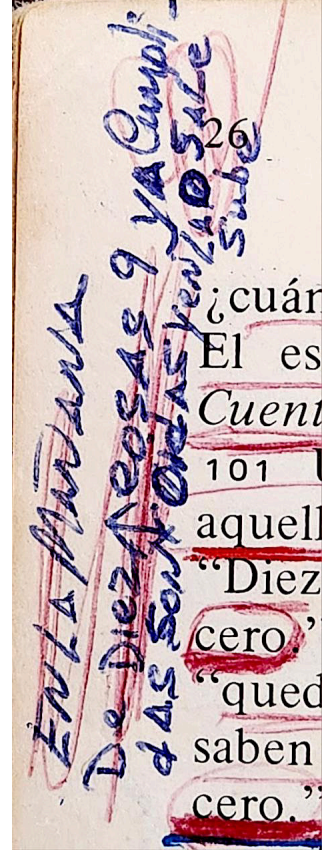 EN LA MAÑANA
De Diez cosas 9 ya Cumpli-
das son
Sube
26
¿cuán
El es
Cuent
101 U
aquell
“Diez
cero.”
“qued
saben
cero.”